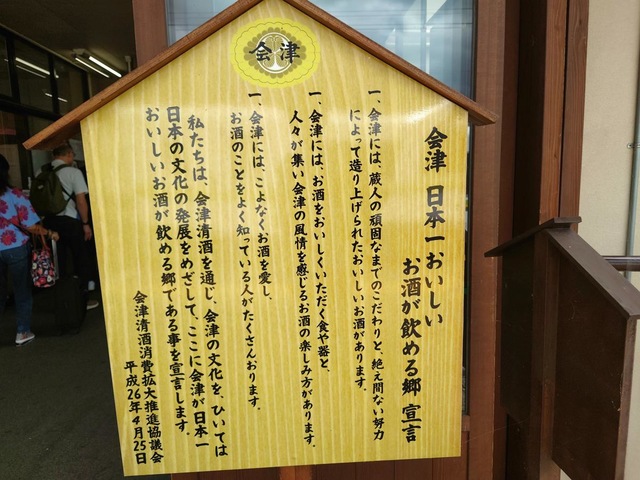 会津
会津 日本一おいしい
お酒が飲める郷 宣言
一、会津には、蔵人の頑固なまでのこだわりと、絶え間ない努力
によって造り上げられたおいしいお酒があります。
一、会津には、お酒をおいしくいただく食や器と、
人々が集い会津の風情を感じるお酒の楽しみ方があります。
一、会津には、こよなくお酒を愛し、
お酒のことをよく知っている人がたくさんおります。
私たちは、会津清酒を通じ、会津の文化を、ひいては
日本の文化の発展をめざして、ここに会津が日本一
おいしいお酒が飲める郷である事を宣言します。
会津清酒消費拡大推進協議会
平成26年4月25日